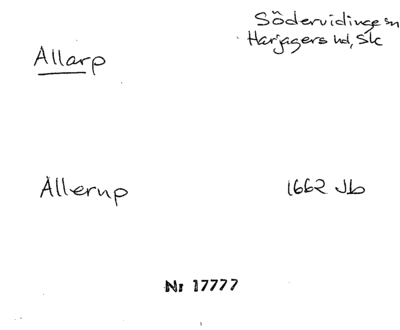 Södervidinge sn
Harjagers hd, Sk
Allarp
Allerup 1662 Jb
Nr 17777